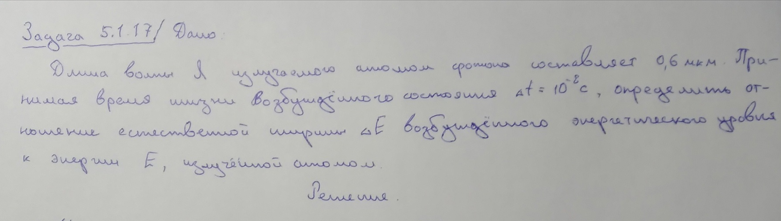 Задача 5.1.17/ Дано:
Длина волны λ излучаемого атомом фотона составляет 0,6 мкм. При-
нимая время жизни возбуждённого состояния Δt = 10⁻⁸с, определить от-
ношение естественной ширины ΔE возбуждённого энергетического уровня
к энергии E, излучённой атомом.
Решение.